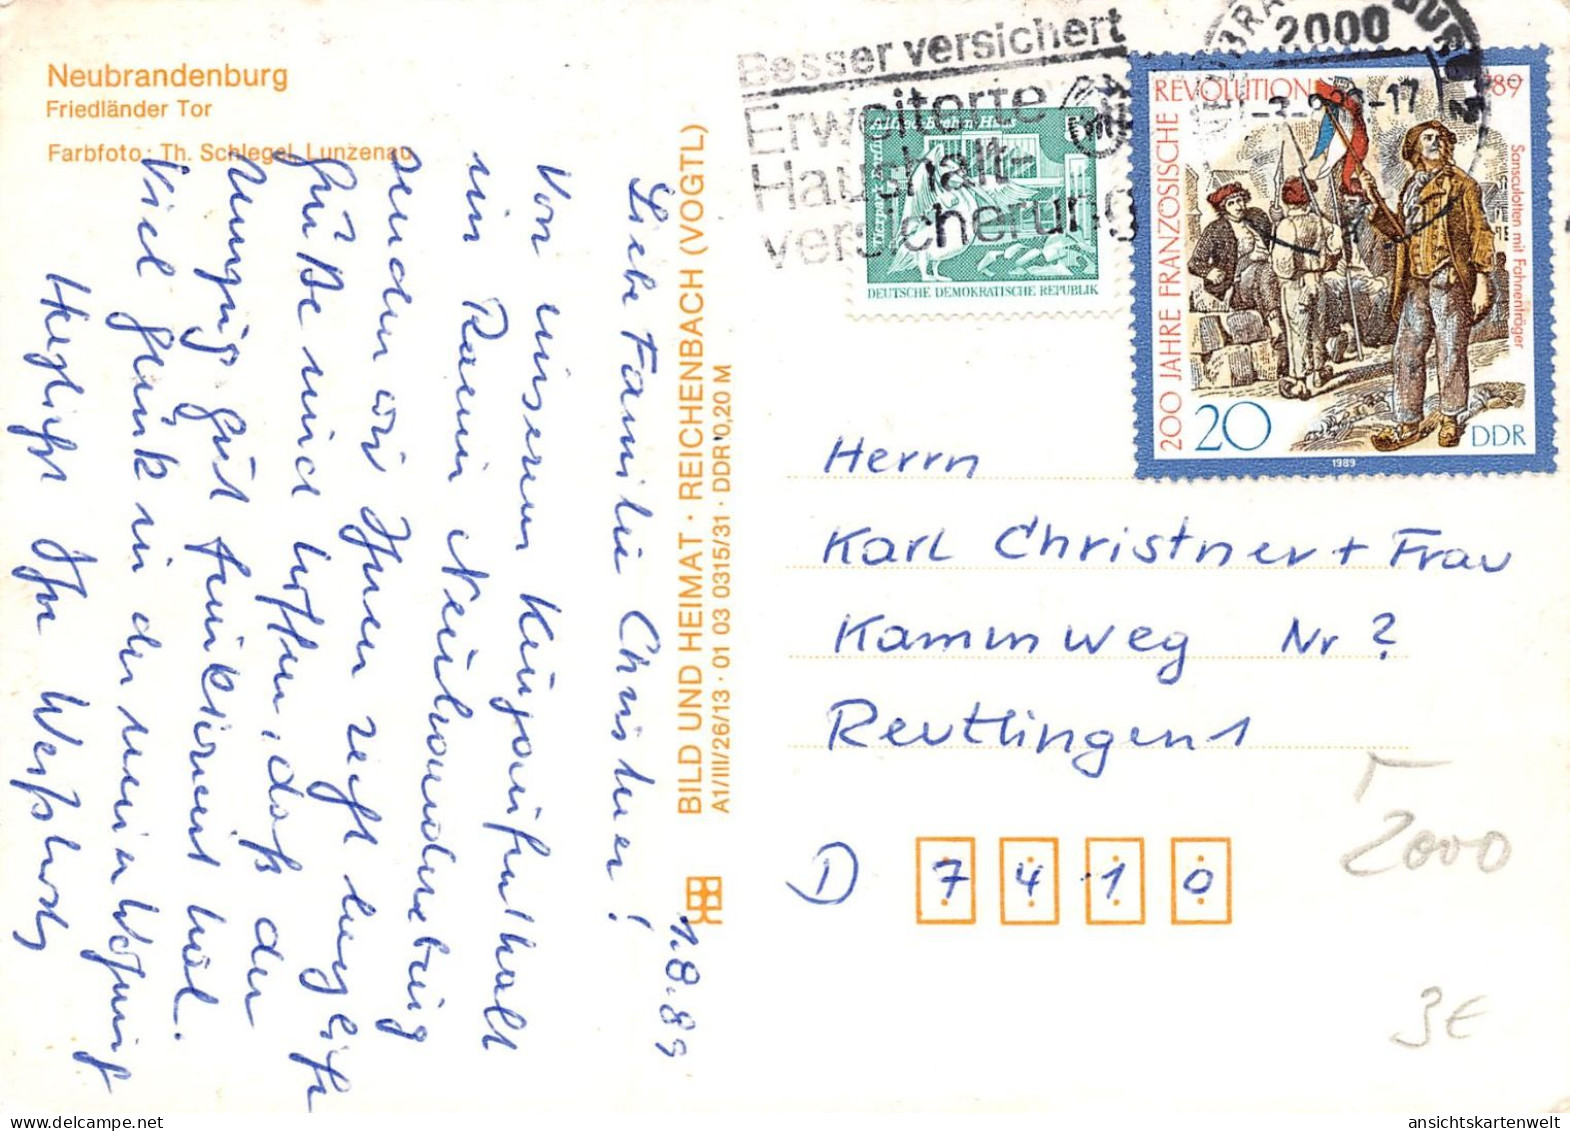 Neubrandenburg
Friedländer Tor
Farbfoto: Th. Schlegel, Lunzenau
Besser versichert
Erweiterte
Haushalt-
versicherung
2000
Alfred-Brehm-Haus
Tierpark Berlin
DEUTSCHE DEMOKRATISCHE REPUBLIK
200 JAHRE FRANZÖSISCHE REVOLUTION 1789
Sansculotten mit Fahnenträger
20
DDR
1989
BILD UND HEIMAT · REICHENBACH (VOGTL)
A1/III/26/13 · 01 03 0315/31 · DDR 0,20 M
1.8.89
Liebe Familie Christner!
Von unserem Kurzaufenthalt
im Raum Neubrandenburg
senden wir Ihnen recht herzliche
Grüße und hoffen, daß der
Umzug gut funktioniert hat.
Viel Glück in der neuen Wohnung
Herzlichst Ihre
Herrn
Karl Christner + Frau
Kammweg Nr ?
Reutlingen 1
D 7410
2000
3 €
ansichtskartenwelt